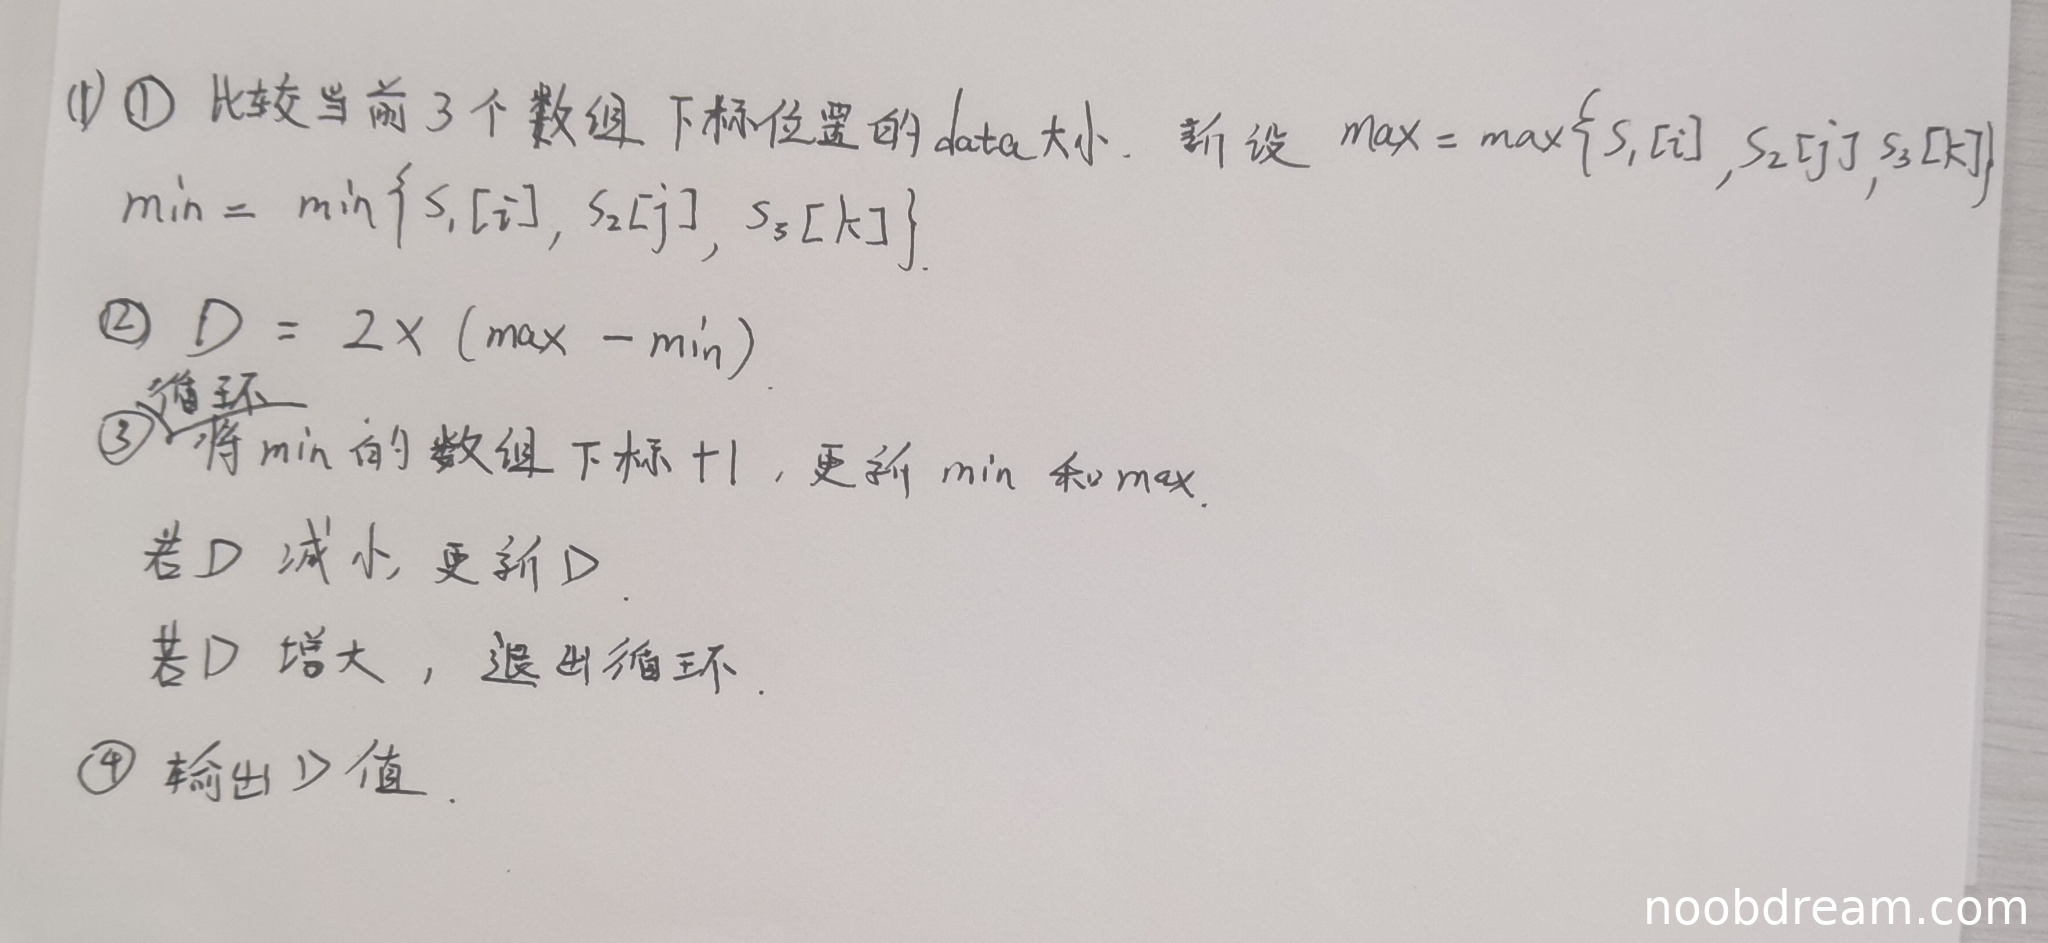 (1) ① 比较当前3个数组下标位置的data大小. 新设 max = max{S₁[i], S₂[j], S₃[k]}
min = min{S₁[i], S₂[j], S₃[k]}.
② D = 2×(max - min).
循环
③ 将min的数组下标+1, 更新min和max.
若D减小, 更新D.
若D增大, 退出循环.
④ 输出D值.
noobdream.com